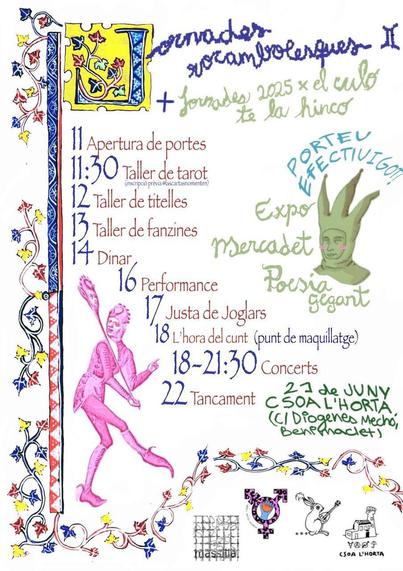 Jornades
rocambolesques II
+ Jornades 2025 x el culo
te la hinco
11 Apertura de portes
11:30 Taller de tarot
12 Taller de titelles
13 Taller de fanzines
14 Dinar
16 Performance
17 Justa de Joglars
18 L'hora del cunt (punt de maquillatge)
18-21:30 Concerts
22 Tancament
PORTEU
EFECTIU
Expo
Mercadet
Poesia
gegant
CSOA L'HORTA
(C/ Diògenes
Benimaclet)
massilia
CSOA L'HORTA